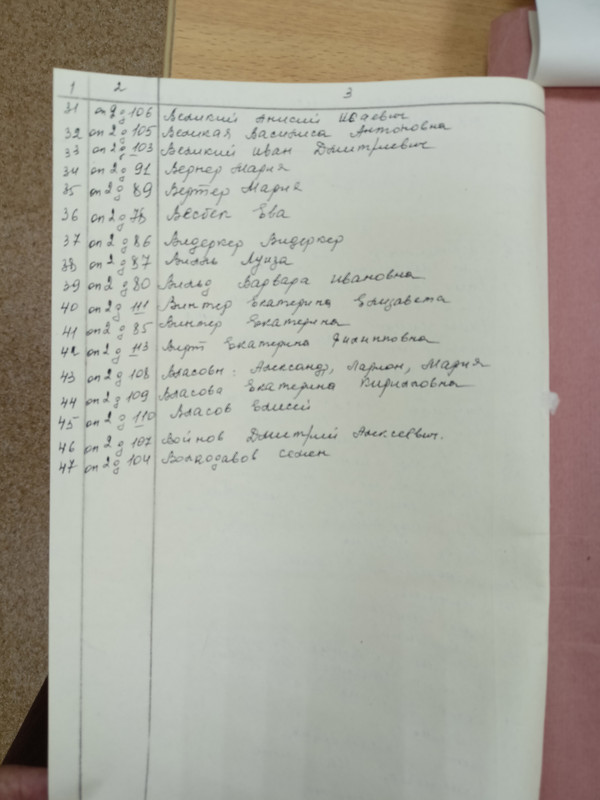 1 2 3
31 оп 2 д 106 Великий Анисий Исаевич
32 оп 2 д 105 Великая Василиса Антоновна
33 оп 2 д 103 Великий Иван Дмитриевич
34 оп 2 д 91 Вернер Мария
35 оп 2 д 89 Вертер Мария
36 оп 2 д 78 Весбен Ева
37 оп 2 д 86 Видеркер Видеркер
38 оп 2 д 87 Луиза
39 оп 2 д 80 Вильд Варвара Ивановна
40 оп 2 д 111 Винтер Екатерина Елизавета
41 оп 2 д 85 Винтер Екатерина
42 оп 2 д 113 Вирт Екатерина Филипповна
43 оп 2 д 108 Власовы: Александр, Ларион, Мария
44 оп 2 д 109 Власова Екатерина Кирилловна
45 оп 2 д 110 Власов Елисей
46 оп 2 д 107 Войнов Дмитрий Алексеевич.
47 оп 2 д 104 Семен